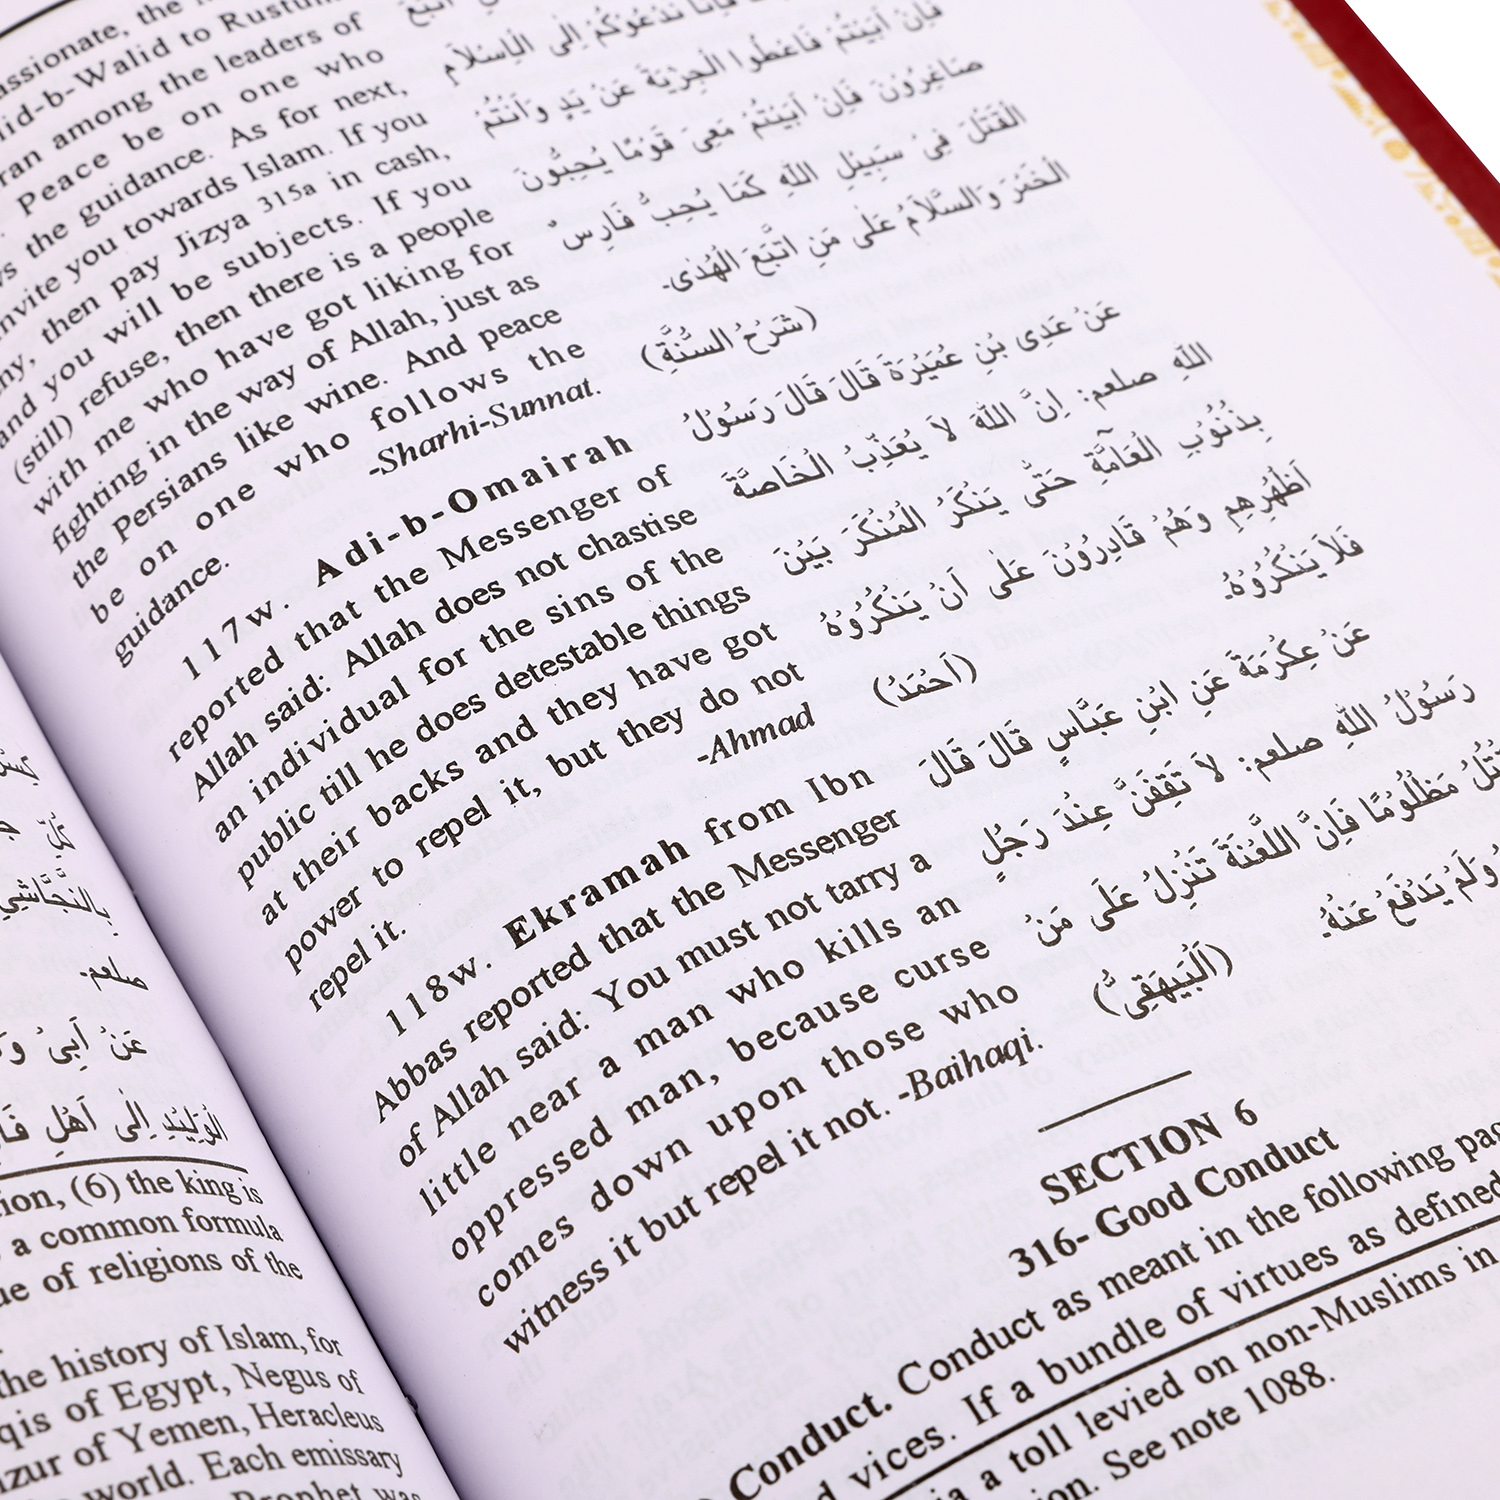 كُلِّ
بِالنَّجَّاشِي
صلعم-
عَنْ اَبِىْ
الْوَلِيْدِ اِلٰى اَهْلِ
tion, (6) the king is
a common formula
ue of religions of the
the history of Islam, for
qis of Egypt, Negus of
zur of Yemen, Heracleus
world. Each emissary
Prophet was
assionate, the
lid-b-Walid to Rustum
ran among the leaders of
Peace be on one who
s the guidance. As for next,
nvite you towards Islam. If you
ny, then pay Jizya 315a in cash,
and you will be subjects. If you
(still) refuse, then there is a people
with me who have got liking for
fighting in the way of Allah, just as
the Persians like wine. And peace
be on one who follows the
guidance. -Sharhi-Sunnat.
117w. Adi-b-Omairah
reported that the Messenger of
Allah said: Allah does not chastise
an individual for the sins of the
public till he does detestable things
at their backs and they have got
power to repel it, but they do not
repel it. -Ahmad
118w. Ekramah from Ibn
Abbas reported that the Messenger
of Allah said: You must not tarry a
little near a man who kills an
oppressed man, because curse
comes down upon those who
witness it but repel it not. -Baihaqi.
فَاِنَّا نَدْعُوْكُمْ اِلَى الْاِسْلَامِ
فَاِنْ اَبَيْتُمْ فَاعْطُوا الْجِزْيَةَ عَنْ يَدٍ وَاَنْتُمْ
صَاغِرُوْنَ فَاِنْ اَبَيْتُمْ مَعِىَ قَوْمًا يُحِبُّوْنَ
الْقَتْلَ فِىْ سَبِيْلِ اللّٰهِ كَمَا يُحِبُّ فَارِسٌ
الْخَمْرَ وَالسَّلَامُ عَلٰى مَنِ اتَّبَعَ الْهُدٰى-
(شَرْحُ السُّنَّةِ)
عَنْ عَدِى بْنِ عُمَيْرَةَ قَالَ قَالَ رَسُوْلُ
اللّٰهِ صلعم: اِنَّ اللّٰهَ لَا يُعَذِّبُ الْخَاصَّةَ
بِذُنُوْبِ الْعَامَّةِ حَتّٰى يَنْكَرُ الْمُنْكَرَ بَيْنَ
اَظْهُرِهِمْ وَهُمْ قَادِرُوْنَ عَلٰى اَنْ يَنْكُرُوْهُ
فَلَا يَنْكُرُوْهُ-
(اَحْمَدُ)
عَنْ عِكْرَمَةَ عَنِ ابْنِ عَبَّاسٍ قَالَ قَالَ
رَسُوْلُ اللّٰهِ صلعم: لَا تَقِفَنَّ عِنْدَ رَجُلٍ
مَظْلُوْمًا فَاِنَّ اللَّعْنَةَ تَنْزِلُ عَلَى مَنْ
وَلَمْ يَدْفَعْ عَنْهُ-
(اَلْبَيْهَقِىُّ)
SECTION 6
316- Good Conduct
Conduct. Conduct as meant in the following
vices. If a bundle of virtues as defined
a toll levied on non-Muslims in
See note 1088.